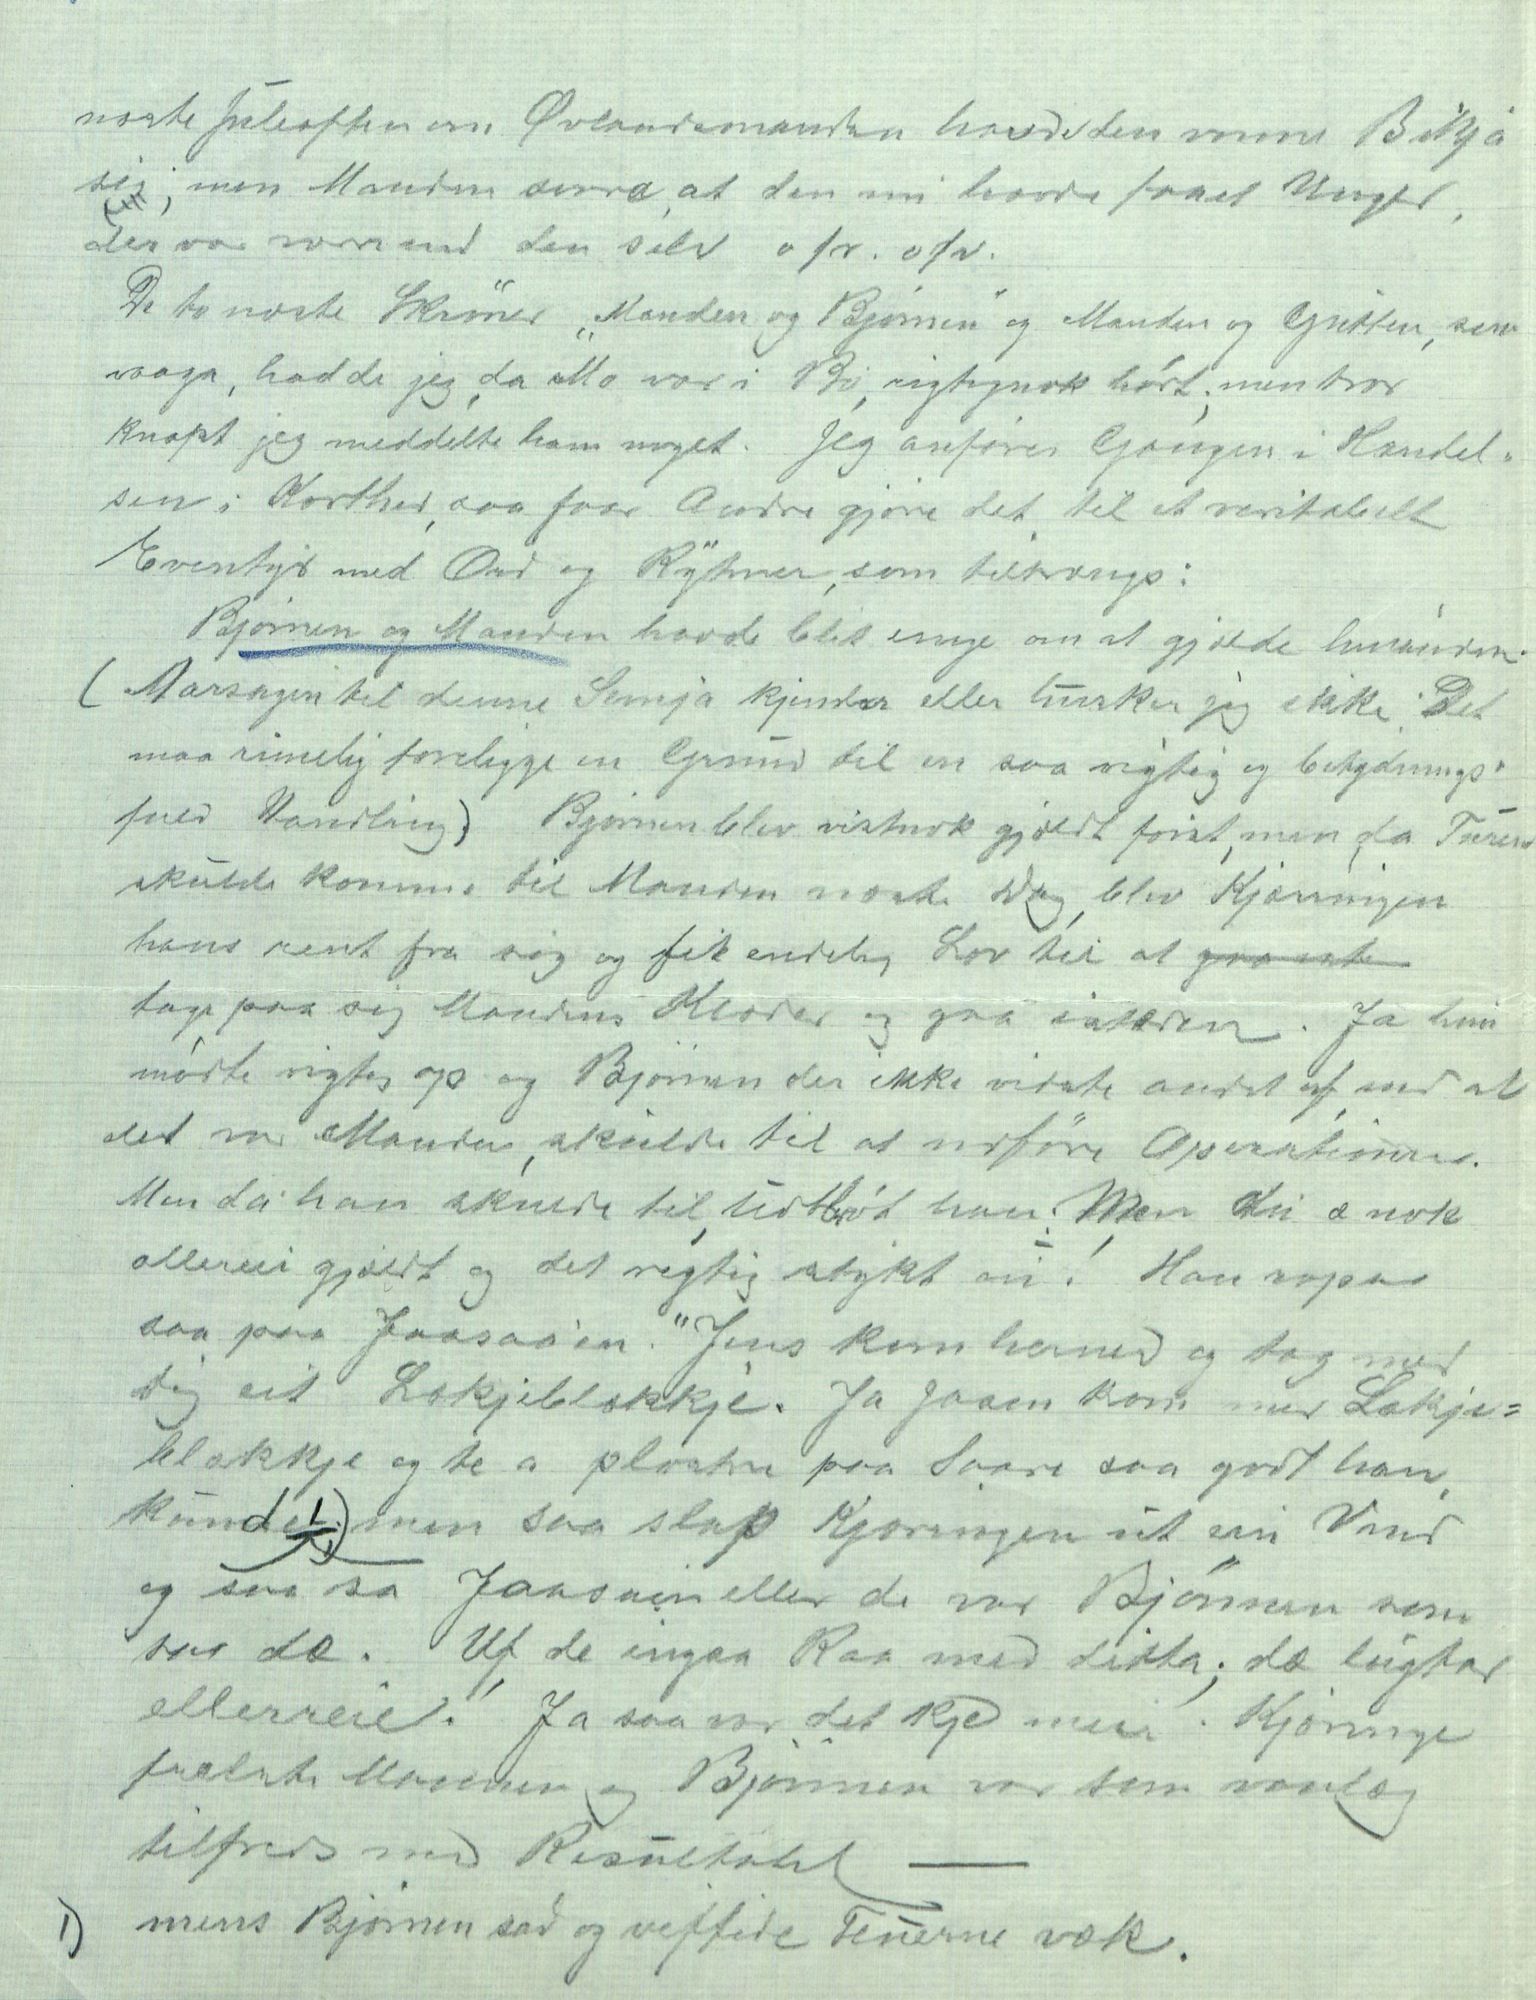 næste Juleaften om Øvlandsmanden havde den Bikja
sin, men Manden svara, at den nu havde faaet Unger,
der var værre end den selv o s v. o s v.
De to næste Skrøner "Manden og Bjørnen" og Manden og Gutten, som
vaaga, hadde jeg, da Mo var i Bø, rigtignok hørt; men tror
knapt jeg meddelte ham noget. Jeg anfører Gangen i Handel-
sen i Korthed, saa faar Andre gjøre det til et veritabelt
Eventyr med Ord og Rytmer, som tiltrængs:
Bjørnen og Manden havde blit enige om at gjælde hinanden.
(Aarsagen til denne Semja kjender eller husker jeg ikke. Det
maa rimelig foreligge en Grund til en saa vigtig og betydnings-
fuld Handling) Bjørnen blev vistnok gjældt først, men da Turen
skulde komme til Manden næste Dag, blev Kjærringen
hans rent fra sig og fik endelig Lov til at
tage paa sig Mandens Klæder og gaa istæden. Ja hun
mødte rigtig op og Bjørnen der ikke vidste andet af, end at
det var Manden, skulde til at udføre Operationen.
Men da han skulde til, udbrøt han: Men du æ nok
allereie gjældt og det rigtig stykt au! Han ropar
saa paa Jaasaaen. "Jens kom herned og tag med
dig eit Lækjeblækkje. Ja Jaasen kom med Lækje=
blækkje og te a plastre paa Saare saa godt han
kunde 1) men saa slap Kjæringen ut ein Vind
og saa sa Jaasaien eller de var Bjørnen som
sae dæ. Uf de ingaa Raa med ditta; dæ lugtar
ellerreie! Ja saa var det kje meir. Kjæringe
frelste Mannen og Bjørnen var som vanleg
tilfreds med Resultatet —
1) mens Bjørnen sad og veftede Fluerne væk.